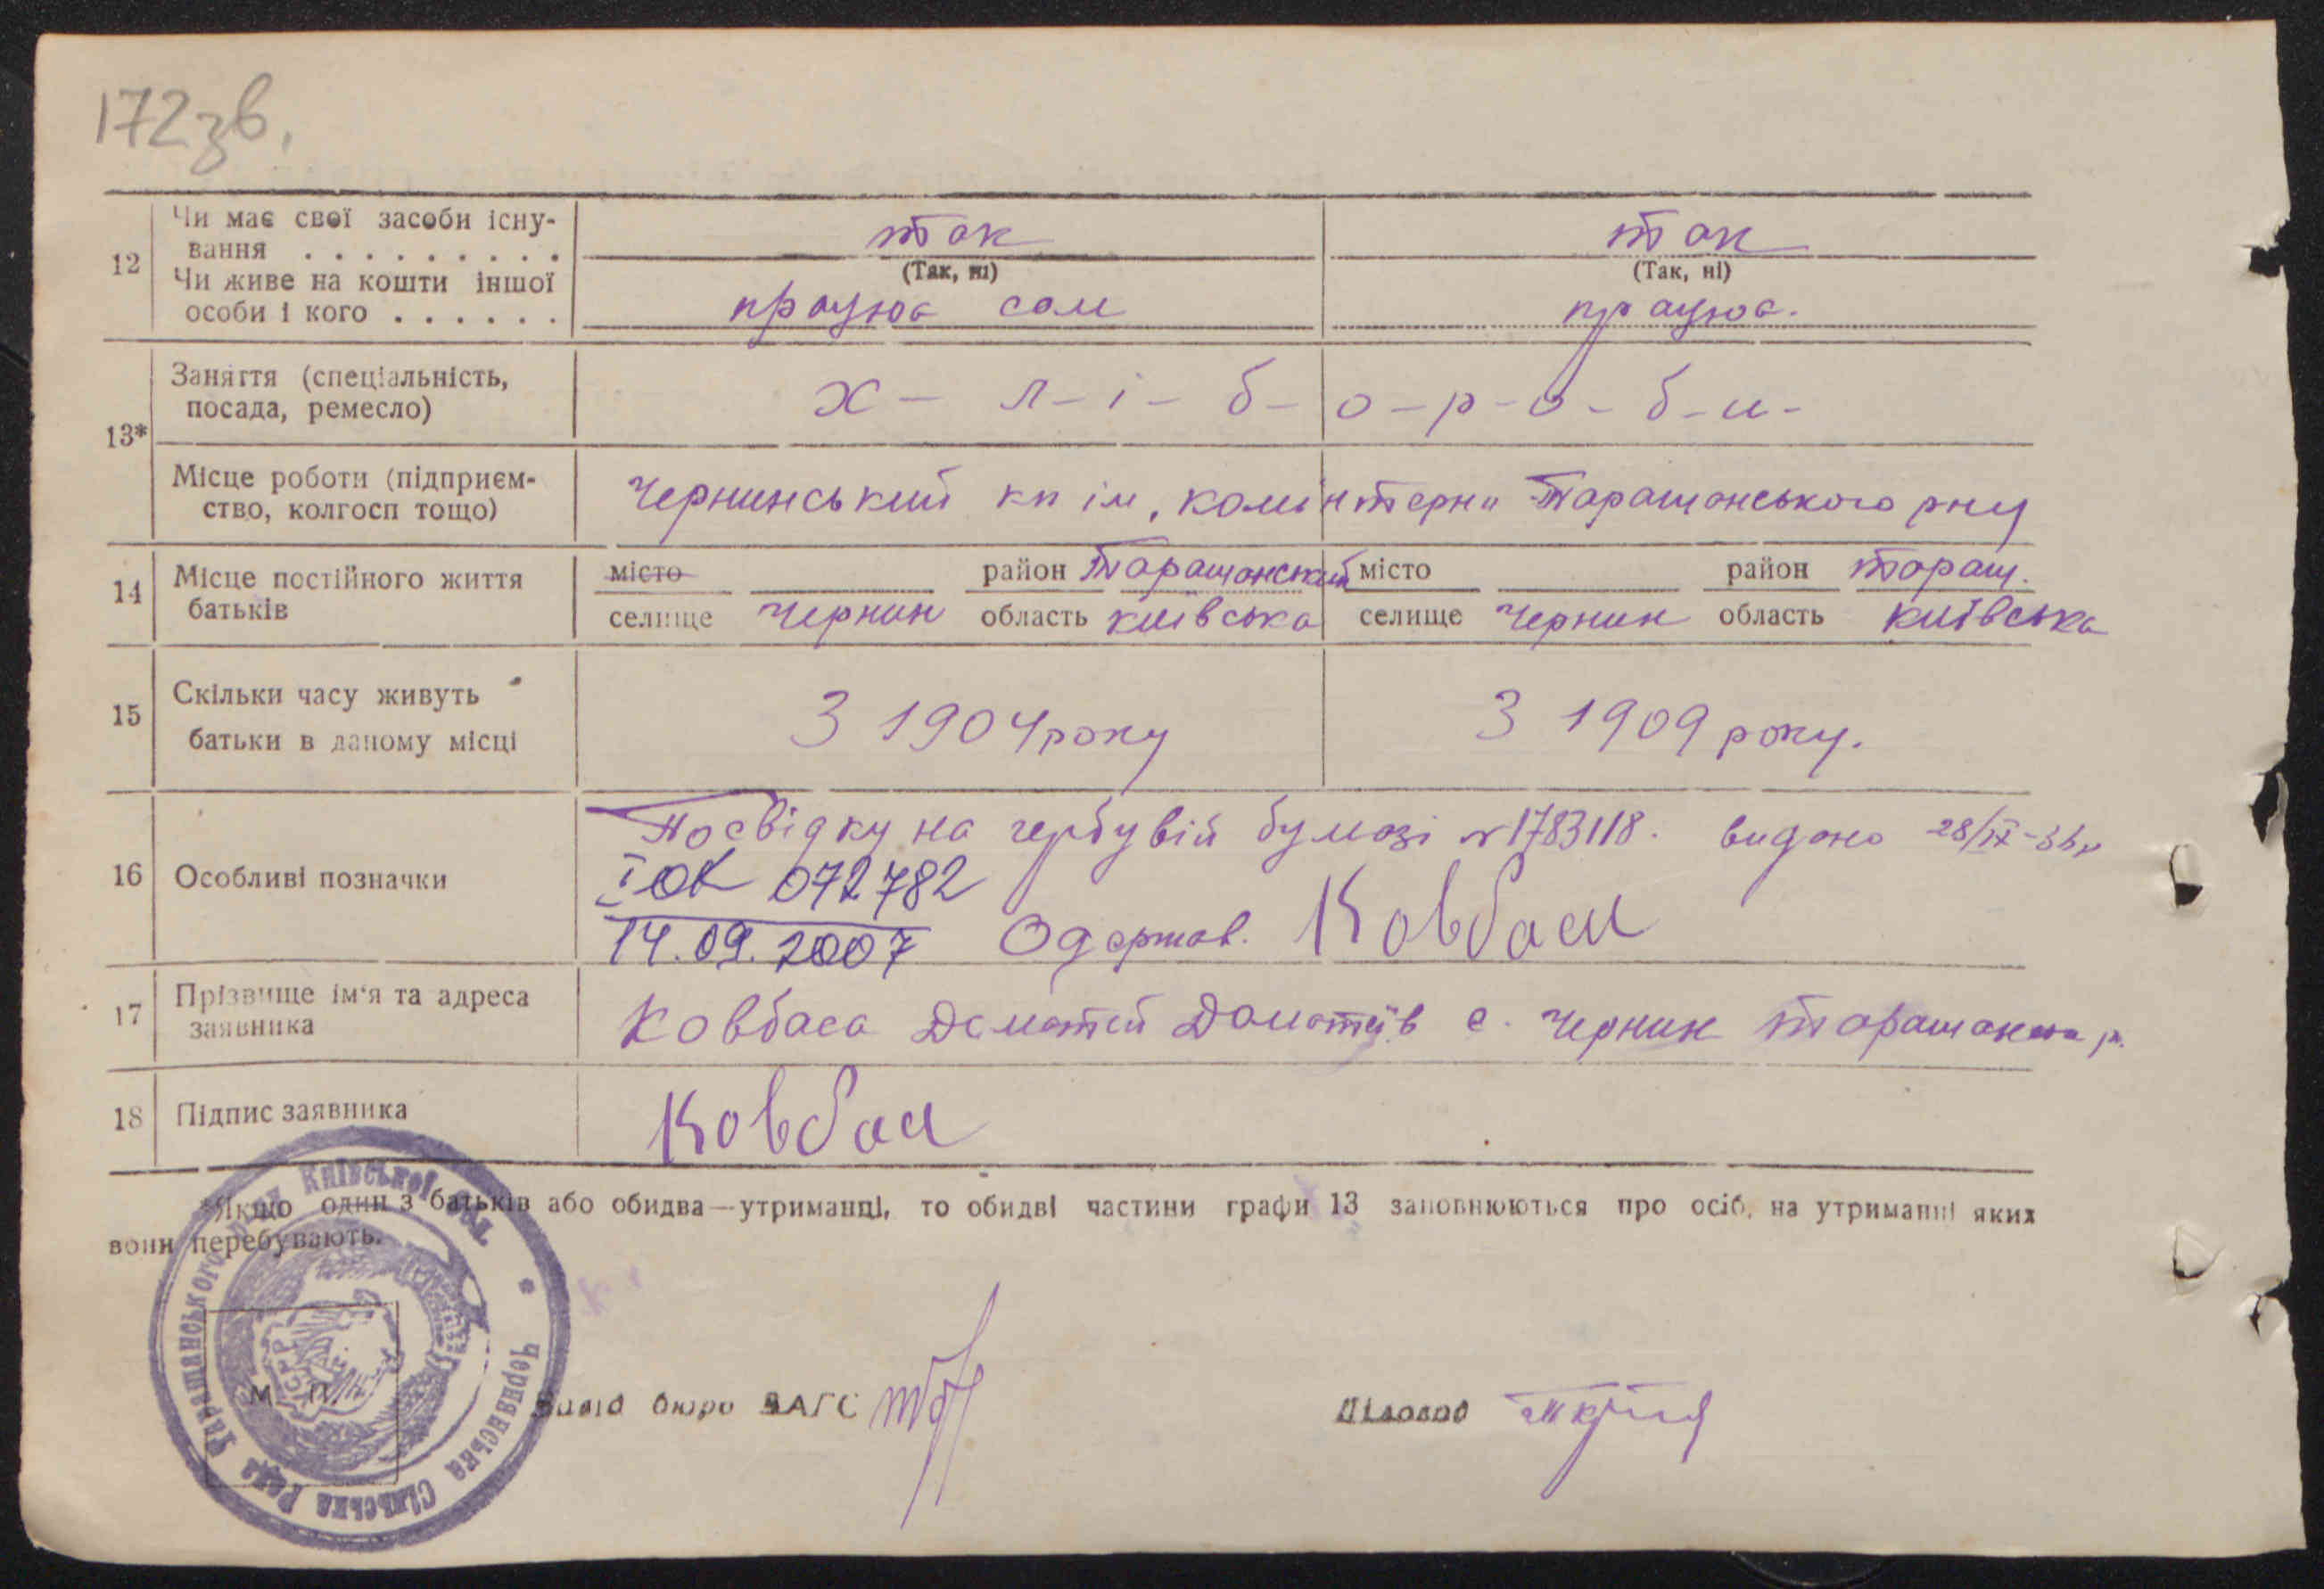 172зв.
12 Чи має свої засоби існу-
вання . . . . . . . . . . так так
(Так, ні) (Так, ні)
Чи живе на кошти іншої
особи і кого . . . . . . працює сам працює.
13* Заняття (спеціальність,
посада, ремесло) х - л - і - б - о - р - о - б - и -
Місце роботи (підприєм-
ство, колгосп тощо) Чернинський кп ім, комінтерни Таращонського рну
14 Місце постійного життя
батьків
місто район Таращонский місто район Таращ.
селище Чернин область київська селище Чернин область київська
15 Скільки часу живуть
батьки в даному місці
З 1904 року З 1909 року.
16 Особливі позначки
Посвідку на гербувій бумазі № 1783118. видано 28/IX-
І ОК 072782
14.09.2007 Одержав. Ковбаси
17 Прізвище ім'я та адреса
заявника
Ковбаса Доматей Доматеїв с. Чернин
18 Підпис заявника Ковбаси
*Якщо один з батьків або обидва—утриманці, то обидві частини графи 13 заповнюються про осіб, на утриманні яких
вони перебувають.
М. П.
бюро ЗАГС Діловод
Чернинська Сільська Рада Таращанського Київської